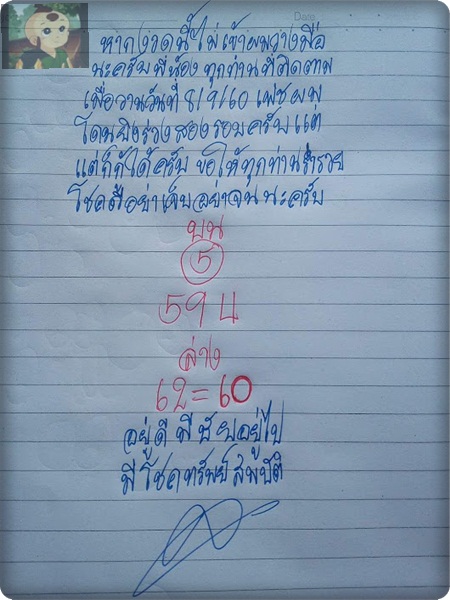 หากงวดนี้ไม่เข้าผมวางมือ
นะครับพี่น้อง ทุกท่านที่ติดตาม
เมื่อวานวันที่ 8/9/60 เฟซผม
โดนยิงร่วงสองรอบครับ แต่
แต่ก็กู้ได้ครับ ขอให้ทุกท่านร่ำรวย
โชคดีอย่าเจ็บอย่าจนนะครับ
บน
5
59
ล่าง
62=60
อยู่ดีมีชัยอยู่ไป
มีโชคทรัพย์สมบัติ